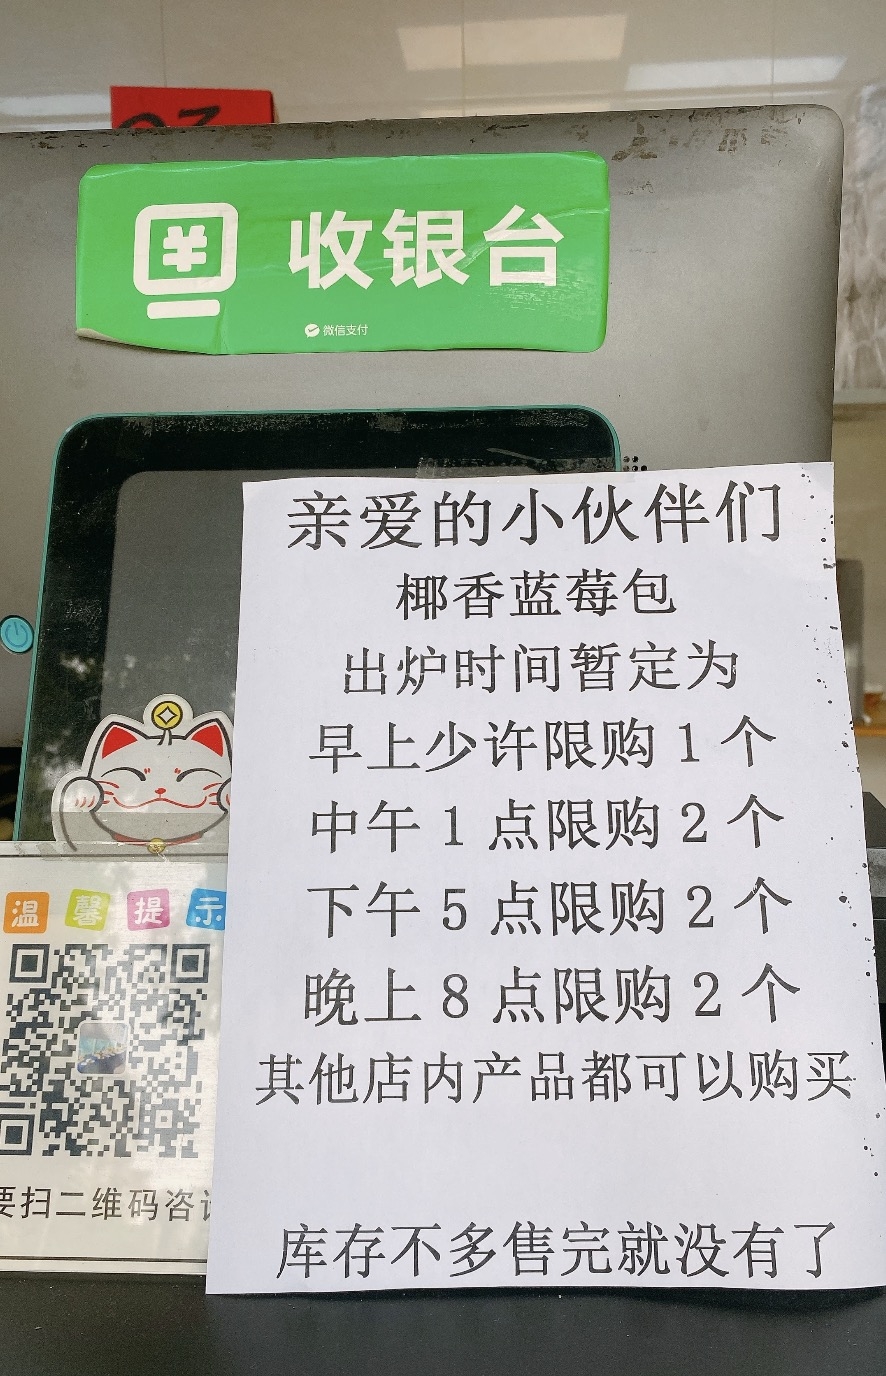 收银台
微信支付
亲爱的小伙伴们
椰香蓝莓包
出炉时间暂定为
早上少许限购1个
中午1点限购2个
下午5点限购2个
晚上8点限购2个
其他店内产品都可以购买
库存不多售完就没有了
温馨提示
要扫二维码咨